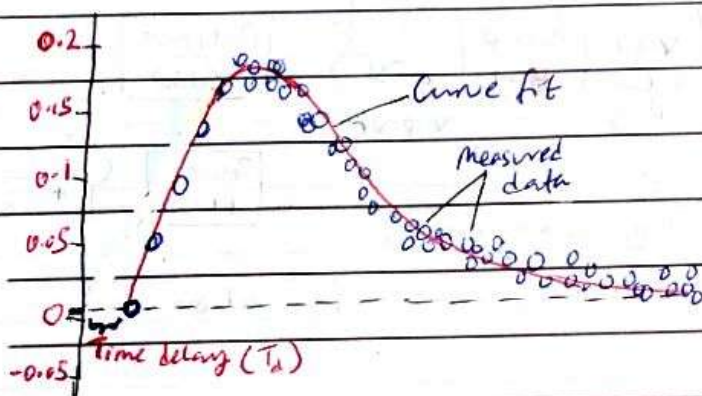 0.2
0.15
0.1
0.05
0
-0.05
Curve fit
measured
data
Time delay (T_d)